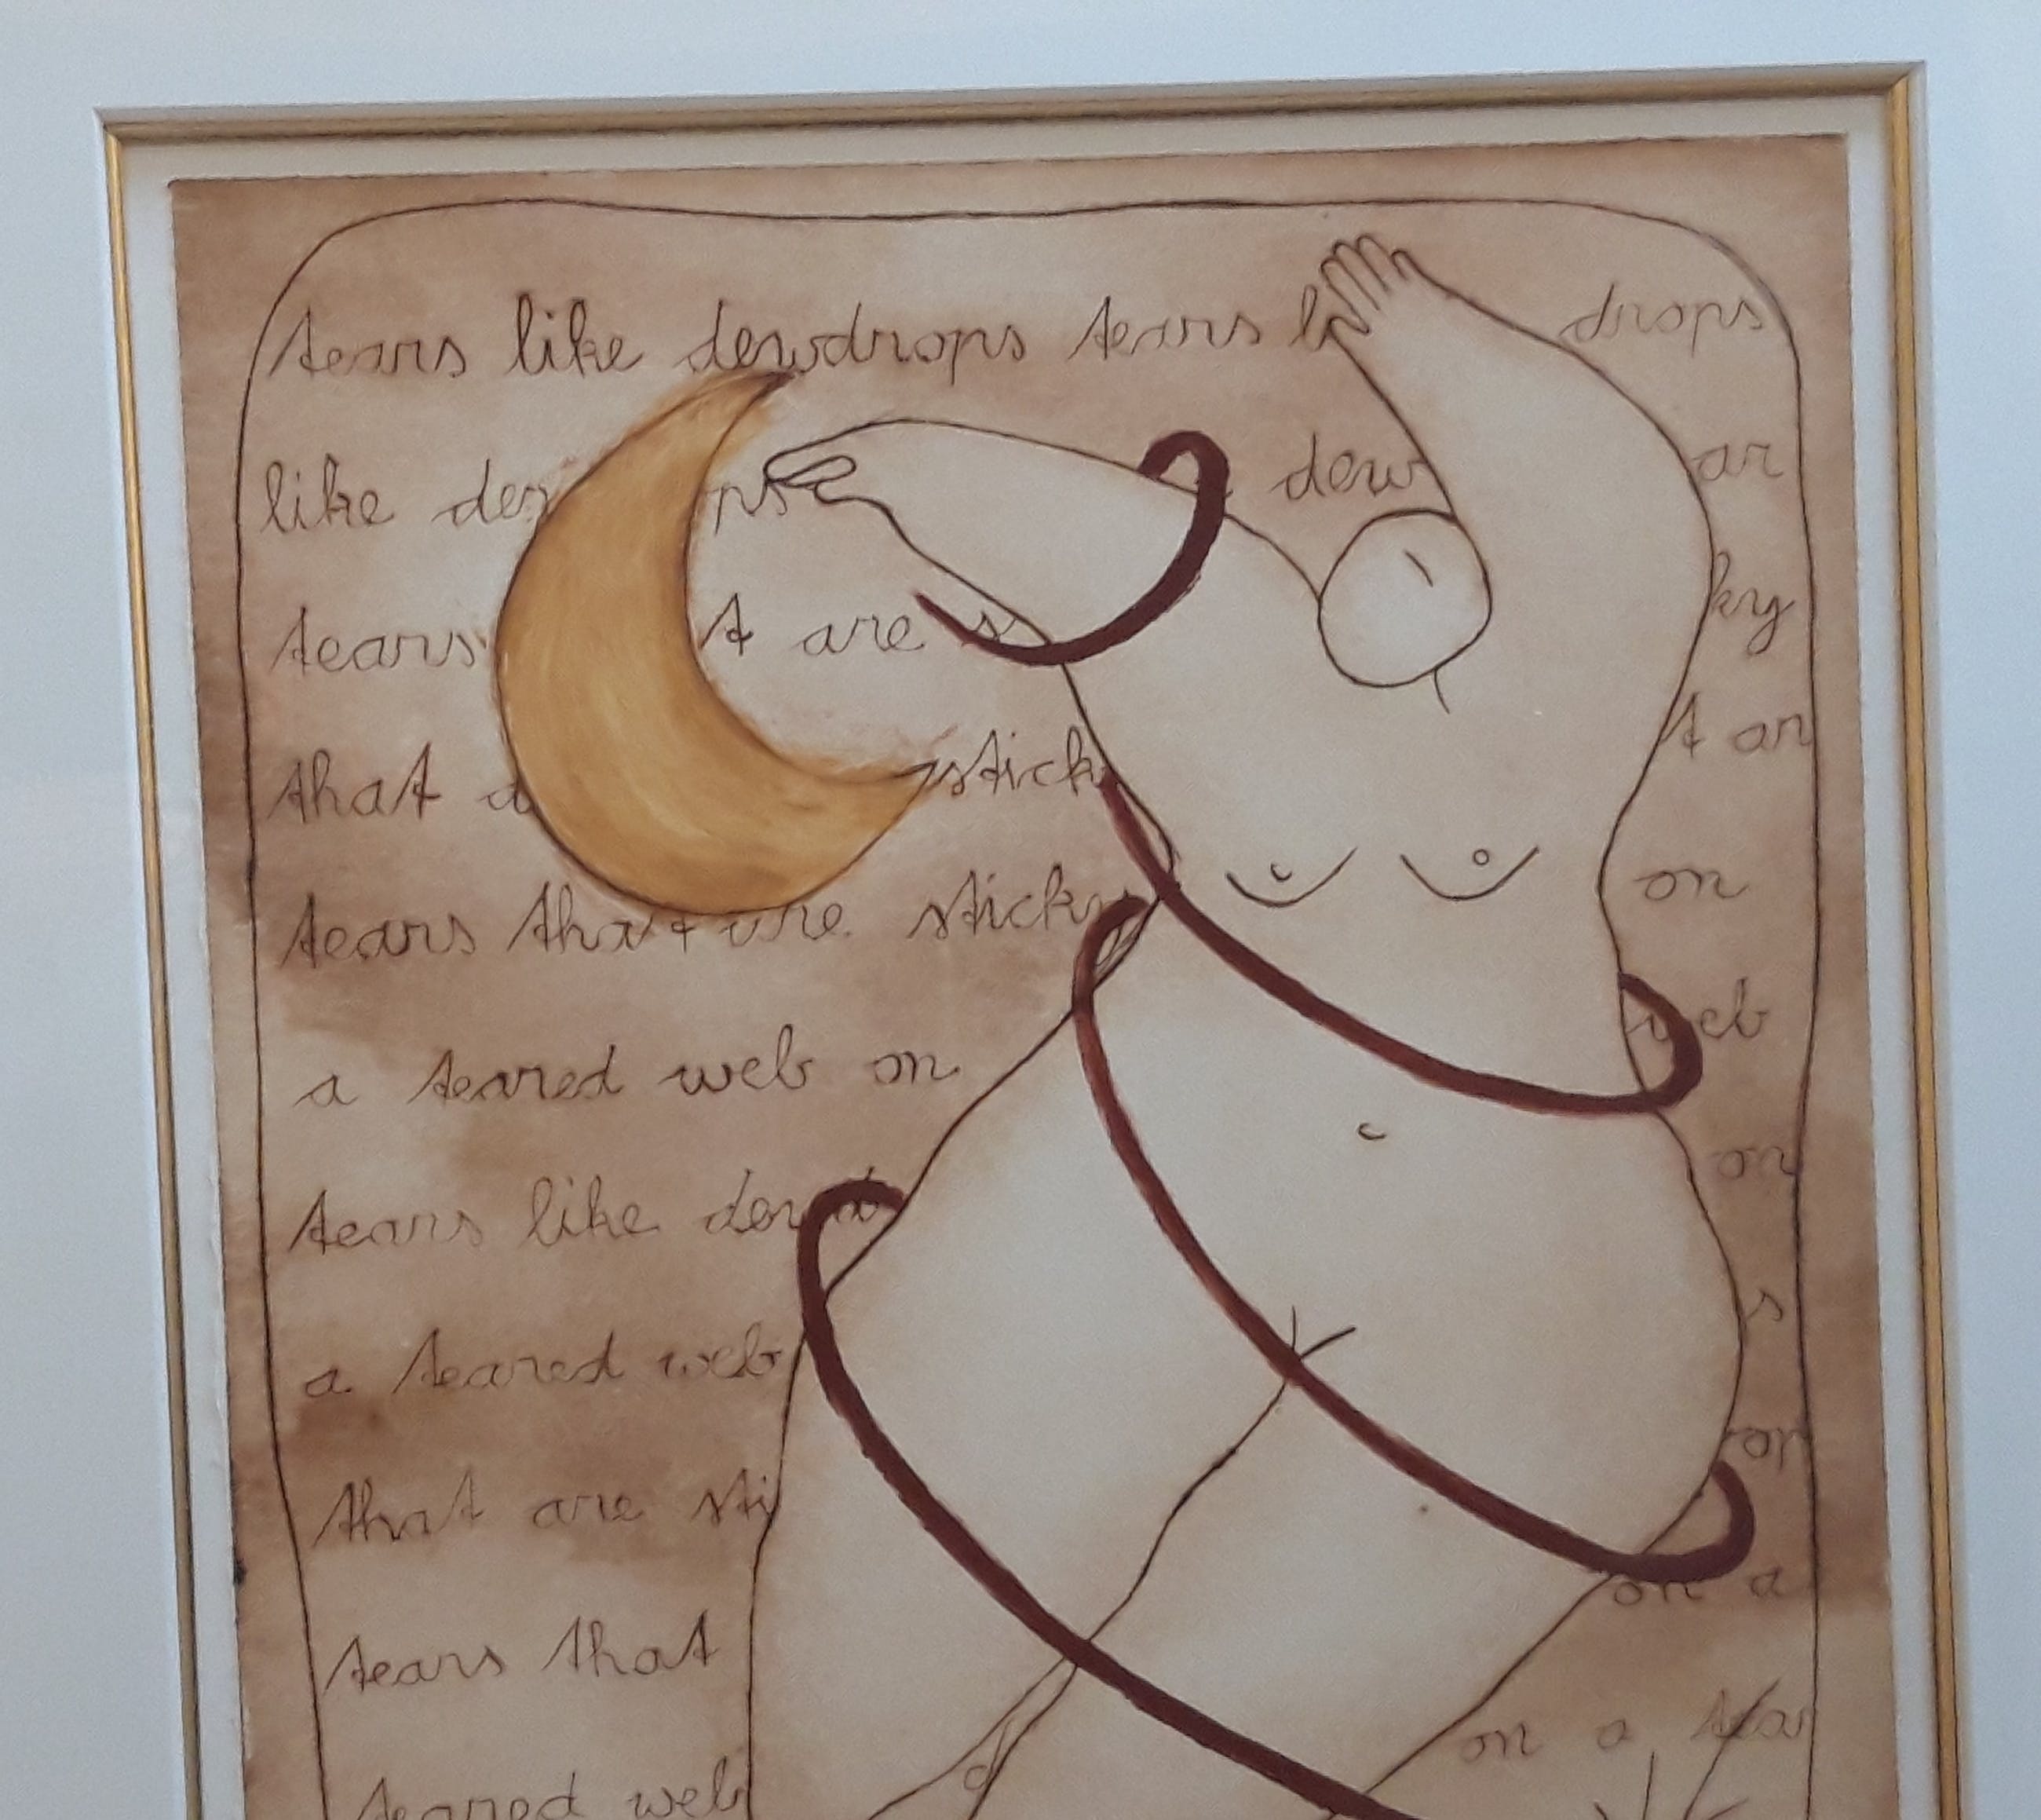 tears like dewdrops tears li drops
like dew ps dew ar
tears t are s ky
that a stick t ar
tears that are sticky on
a teared web on web
tears like dewd on
a teared web s
that are sti or
tears that on a
teared web on a tear